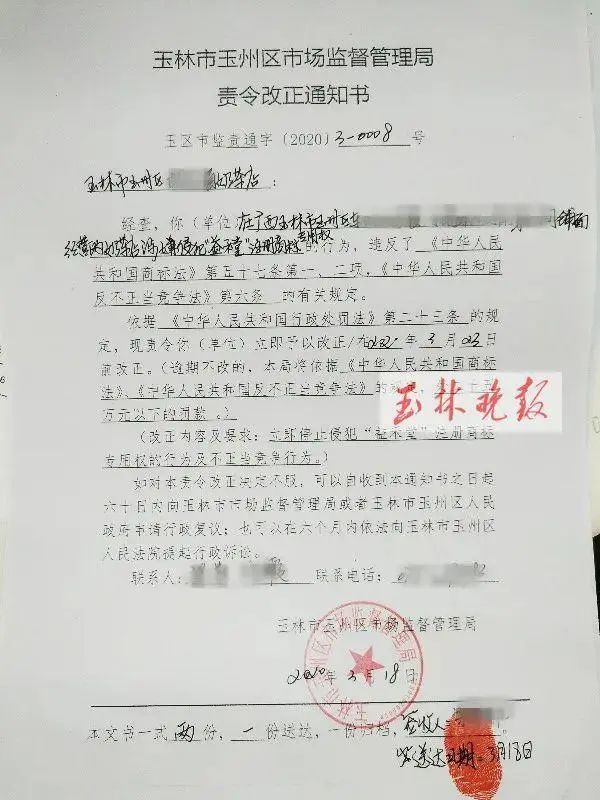 玉林市玉州区市场监督管理局
责令改正通知书
玉区市监责通字〔2020〕3-0008 号
玉林市玉州区 奶茶店：
经查，你（单位）在广西玉林市玉州区 铺面
经营的奶茶店涉嫌侵犯"益禾堂"注册商标专用权的行为，违反了《中华人民
共和国商标法》第五十七条第一、二项，《中华人民共和国
反不正当竞争法》第六条 的有关规定。
依据《中华人民共和国行政处罚法》第二十三条的规
定，现责令你（单位）立即予以改正/在2020年3月23日
前改正。（逾期不改的，本局将依据《中华人民共和国商标
法》、《中华人民共和国反不正当竞争法》的
万元以下的罚款。）
玉林晚报
（改正内容及要求：立即停止侵犯"益禾堂"注册商标
专用权的行为及不正当竞争行为。）
如对本责令改正决定不服，可以自收到本通知书之日起
六十日内向玉林市市场监督管理局或者玉林市玉州区人民
政府申请行政复议；也可以在六个月内依法向玉林市玉州区
人民法院提起行政诉讼。
联系人： 联系电话：
玉林市玉州区市场监督管理局
2020年3月18日
本文书一式两份，一份送达，一份归档，签收人
送达日期：3月18日